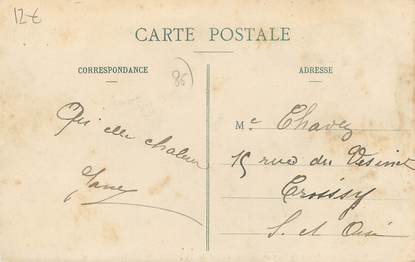 12€
CARTE POSTALE
CORRESPONDANCE
85
ADRESSE
Mᵉ Chavez
Qu'elle chaleur
15 rue du Vésinet
Croissy
S. et Oise